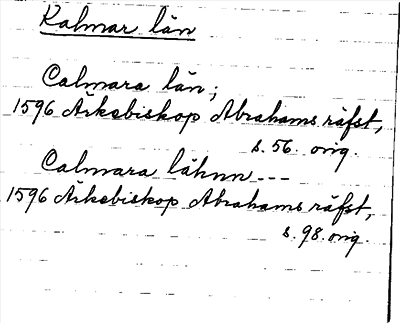 Kalmar län
Calmara län;
1596 Ärkebiskop Abrahams räfst,
s. 56. orig.
Calmara lähnn ---
1596 Ärkebiskop Abrahams räfst,
s. 98. orig.